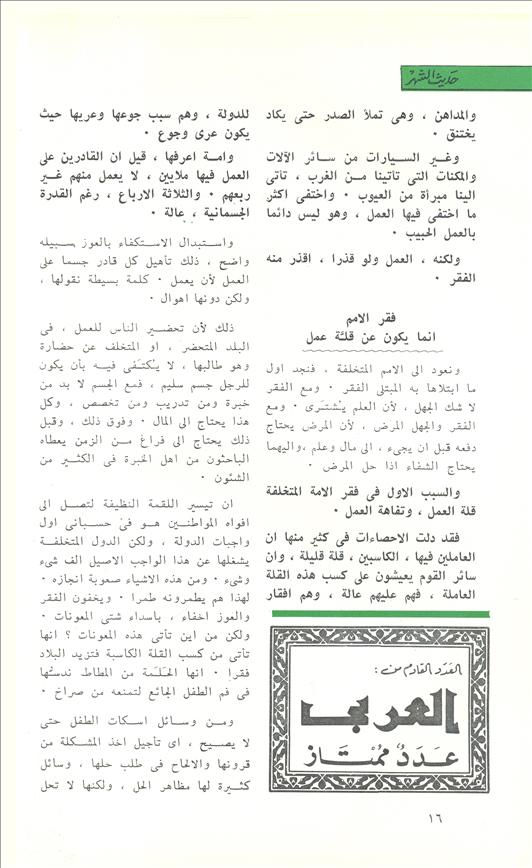 حديث الشهر
والمداهن ، وهى تملأ الصدر حتى يكاد
يختنق ٠
وغير السيارات من سائر الآلات
والمكنات التى تأتينا من الغرب ، تأتى
الينا مبرأة من العيوب ٠ واختفى اكثر
ما اختفى فيها العمل ، وهو ليس دائما
بالعمل الحبيب ٠
ولكنه ، العمل ولو قذرا ، اقذر منه
الفقر ٠
فقر الامم
انما يكون عن قلة عمل
ونعود الى الامم المتخلفة ، فنجد اول
ما ابتلاها به المبتلى الفقر ٠ ومع الفقر
لا شك الجهل ، لأن العلم يشترى ٠ ومع
الفقر والجهل المرض ، لأن المرض يحتاج
دفعه قبل ان يجىء ، الى مال وعلم ،واليهما
يحتاج الشفاء اذا حل المرض ٠
والسبب الاول فى فقر الامة المتخلفة
قلة العمل ، وتفاهة العمل ٠
فقد دلت الاحصاءات فى كثير منها ان
العاملين فيها ، الكاسبين ، قلة قليلة ، وان
سائر القوم يعيشون على كسب هذه القلة
العاملة ، فهم عليهم عالة ، وهم افقار
العدد القادم من :
العربى
عدد ممتاز
للدولة ، وهم سبب جوعها وعريها حيث
يكون عرى وجوع ٠
وامة اعرفها ، قيل ان القادرين على
العمل فيها ملايين ، لا يعمل منهم غير
ربعهم ٠ والثلاثة الارباع ، رغم القدرة
الجسمانية ، عالة ٠
واستبدال الاستكفاء بالعوز سبيله
واضح ، ذلك تأهيل كل قادر جسما على
العمل لأن يعمل ٠ كلمة بسيطة نقولها ،
ولكن دونها اهوال ٠
ذلك لأن تحضير الناس للعمل ، فى
البلد المتحضر ، او المتخلف عن حضارة
وهو طالبها ، لا يكتفى فيه بأن يكون
للرجل جسم سليم ، فمع الجسم لا بد من
خبرة ومن تدريب ومن تخصص ، وكل
هذا يحتاج الى المال ٠ وفوق ذلك ، وقبل
ذلك يحتاج الى فراغ من الزمن يعطاه
الباحثون من اهل الخبرة فى الكثير من
الشئون ٠
ان تيسير اللقمة النظيفة لتصل الى
افواه المواطنين هو فى حسبانى اول
واجبات الدولة ، ولكن الدول المتخلفة
يشغلها عن هذا الواجب الاصيل الف شىء
وشىء ٠ ومن هذه الاشياء صعوبة انجازه ٠
لهذا هم يطمرونه طمرا ٠ ويخفون الفقر
والعوز اخفاء ، باسداء شتى المعونات ٠
ولكن من اين تأتى هذه المعونات ؟ انها
تأتى من كسب القلة الكاسبة فتزيد البلاد
فقرا ٠ انها الحلمة من المطاط ندسها
فى فم الطفل الجائع لتمنعه من صراخ ٠
ومن وسائل اسكات الطفل حتى
لا يصيح ، اى تأجيل اخذ المشكلة من
قرونها والالحاح فى طلب حلها ، وسائل
كثيرة لها مظاهر الحل ، ولكنها لا تحل
١٦